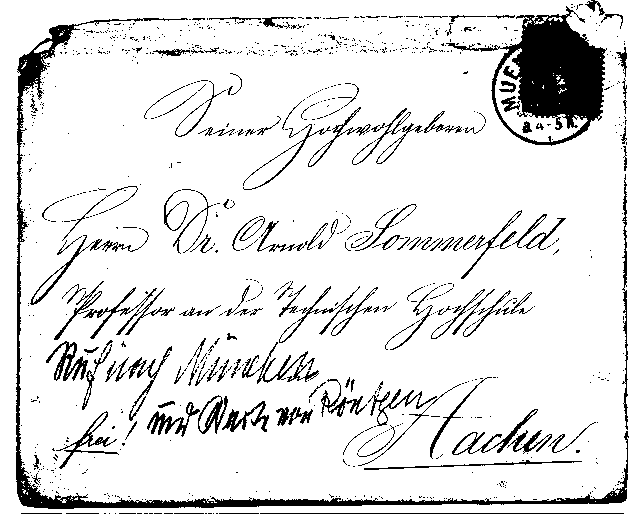 MUE
8.4-5N.
Seiner Hochwohlgeboren
Herrn Dr. Arnold Sommerfeld,
Professor an der Technischen Hochschule
Ruf nach München
und Karte von Röntgen
frei!
Aachen.